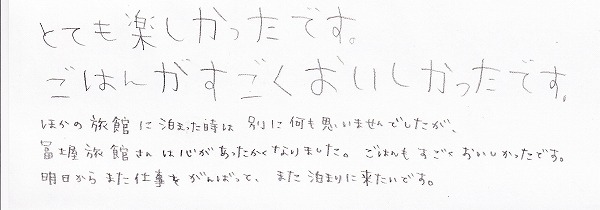 とても楽しかったです。
ごはんがすごくおいしかったです。
ほかの旅館に泊まった時は 別に何も思いませんでしたが、
冨士屋旅館さんは心があったかくなりました。ごはんもすごくおいしかったです。
明日からまた仕事をがんばって、また泊まりに来たいです。